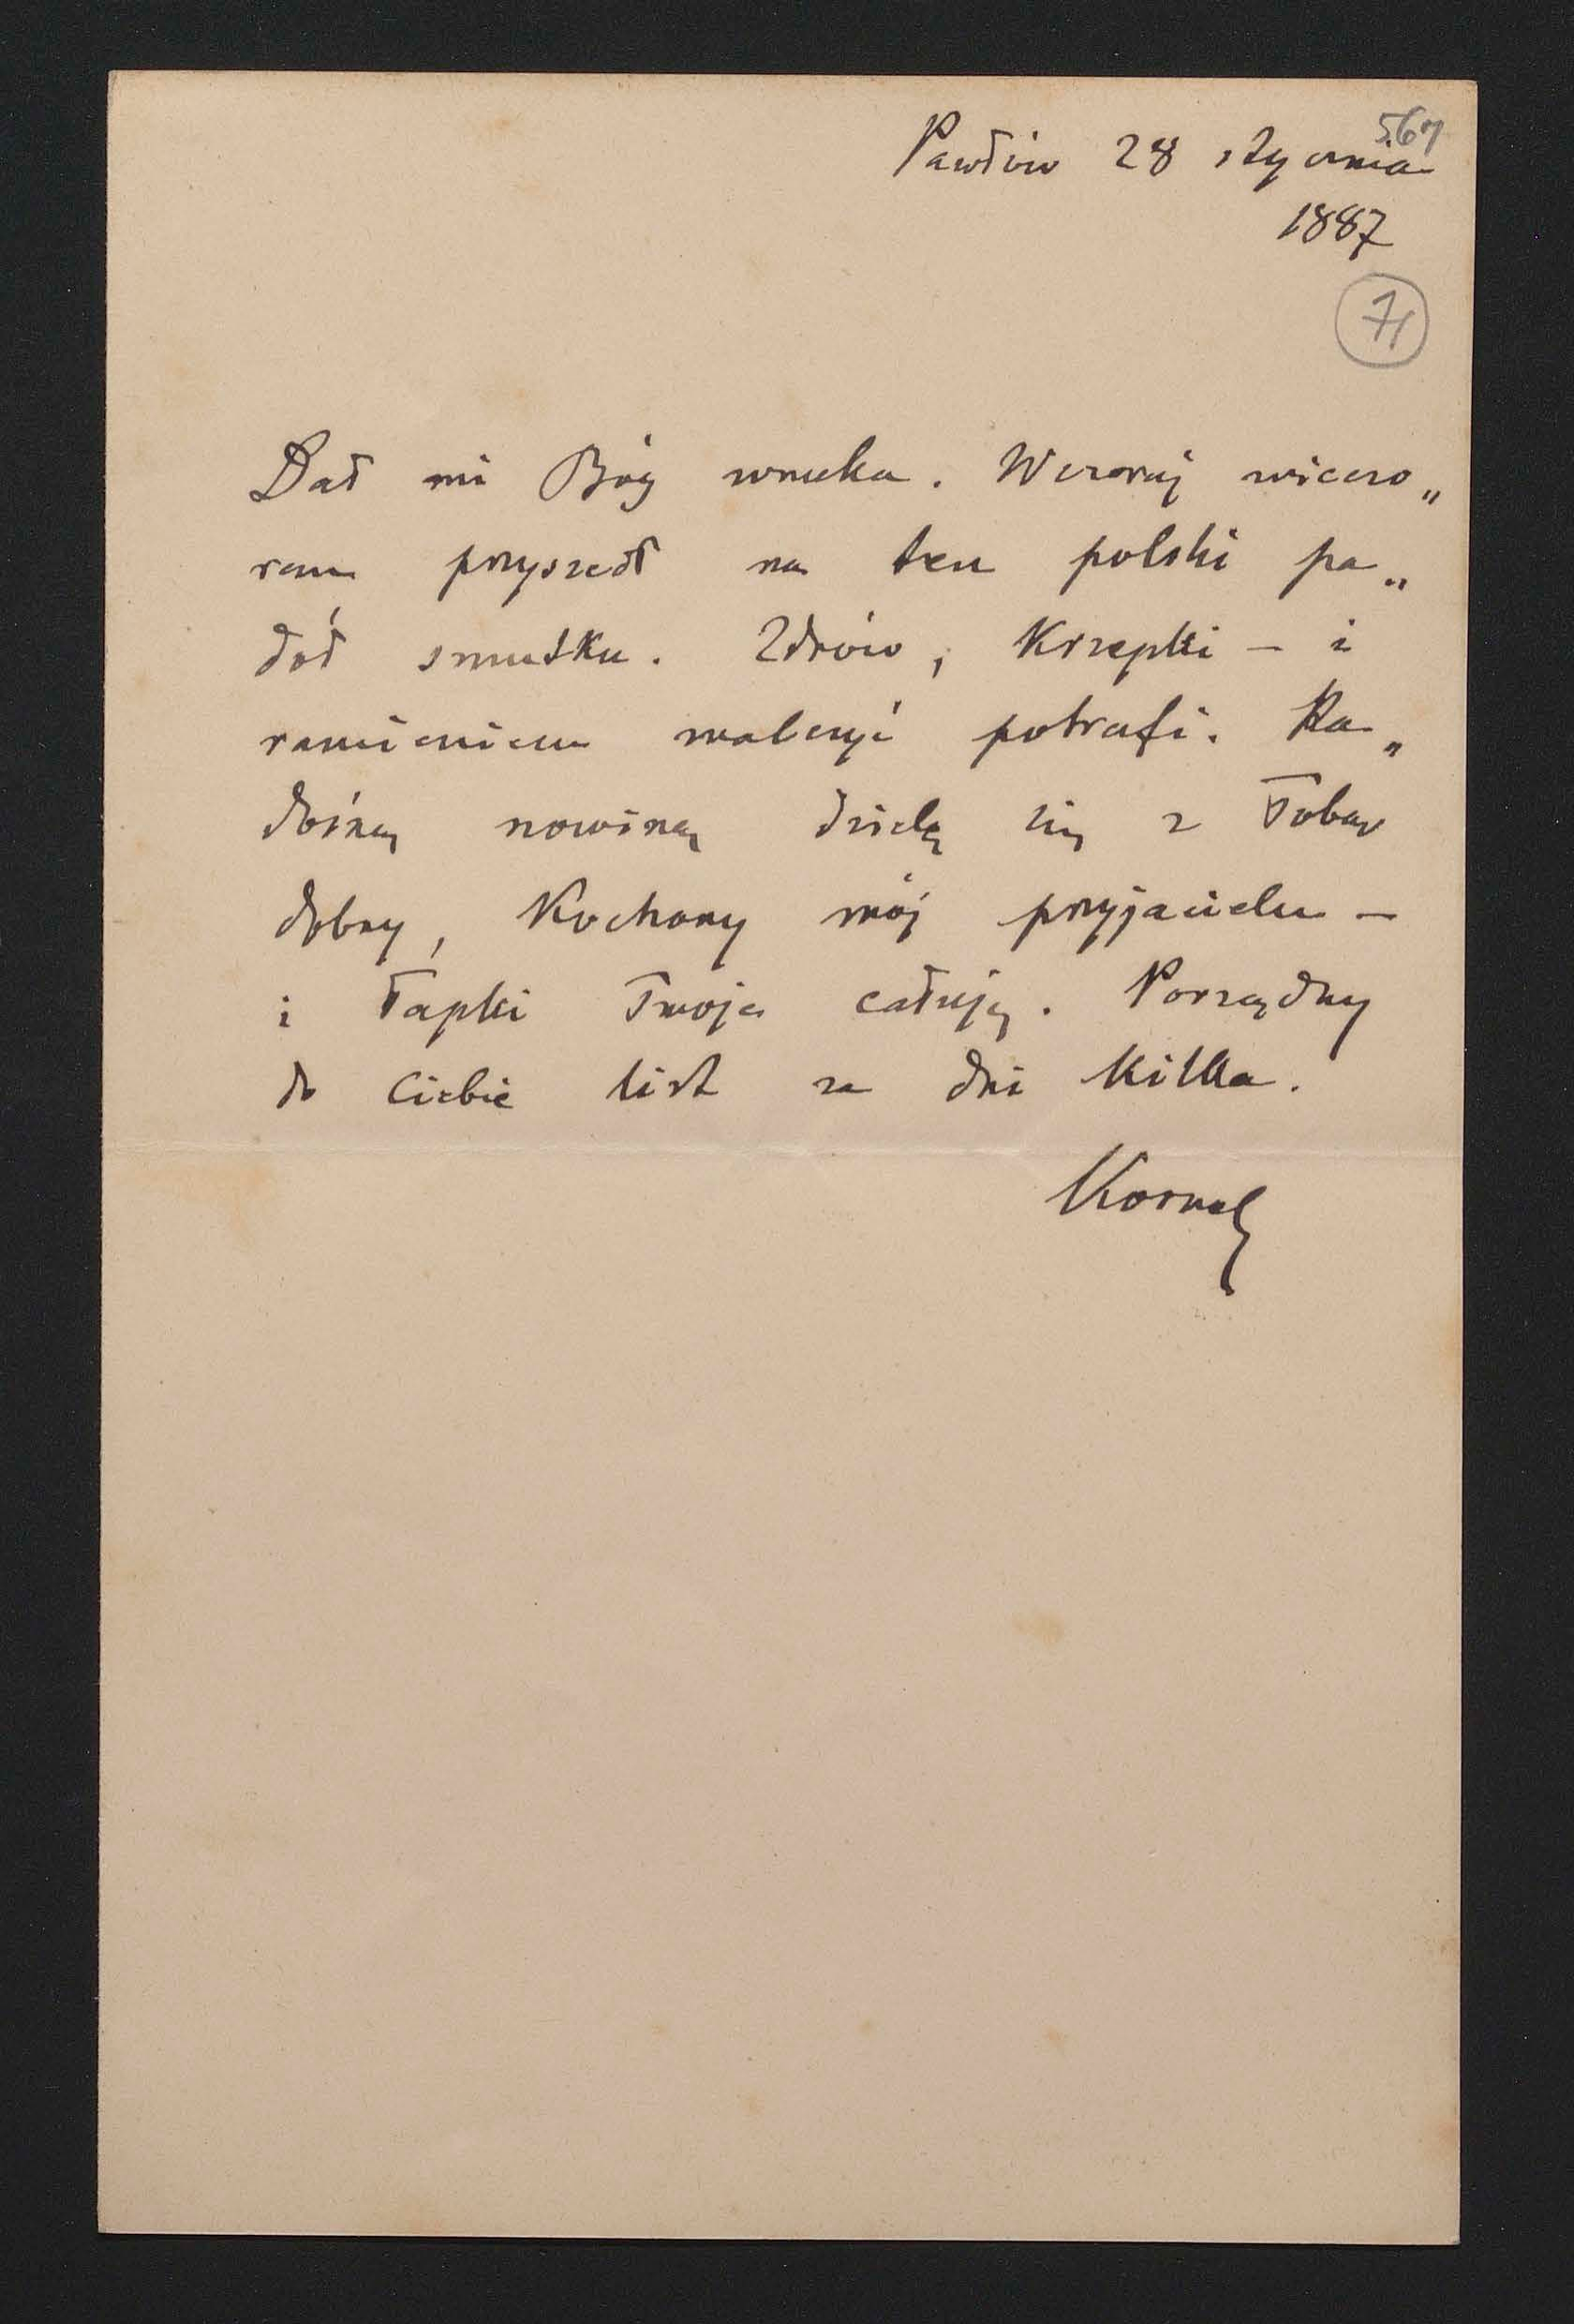 567
Pawłów 28 stycznia
1887
71
Dał mi Bóg wnuka. Wczoraj wieczo„
rem przyszedł na ten polski pa„
dół smutku. Zdrów, krzepki – i
ramieniem walczyć potrafi. Ra„
dośną nowiną dzielę się z Tobą
dobry, kochany mój przyjacielu –
i łapki Twoje całuję. Porządny
do Ciebie list za dni kilka.
Kornel